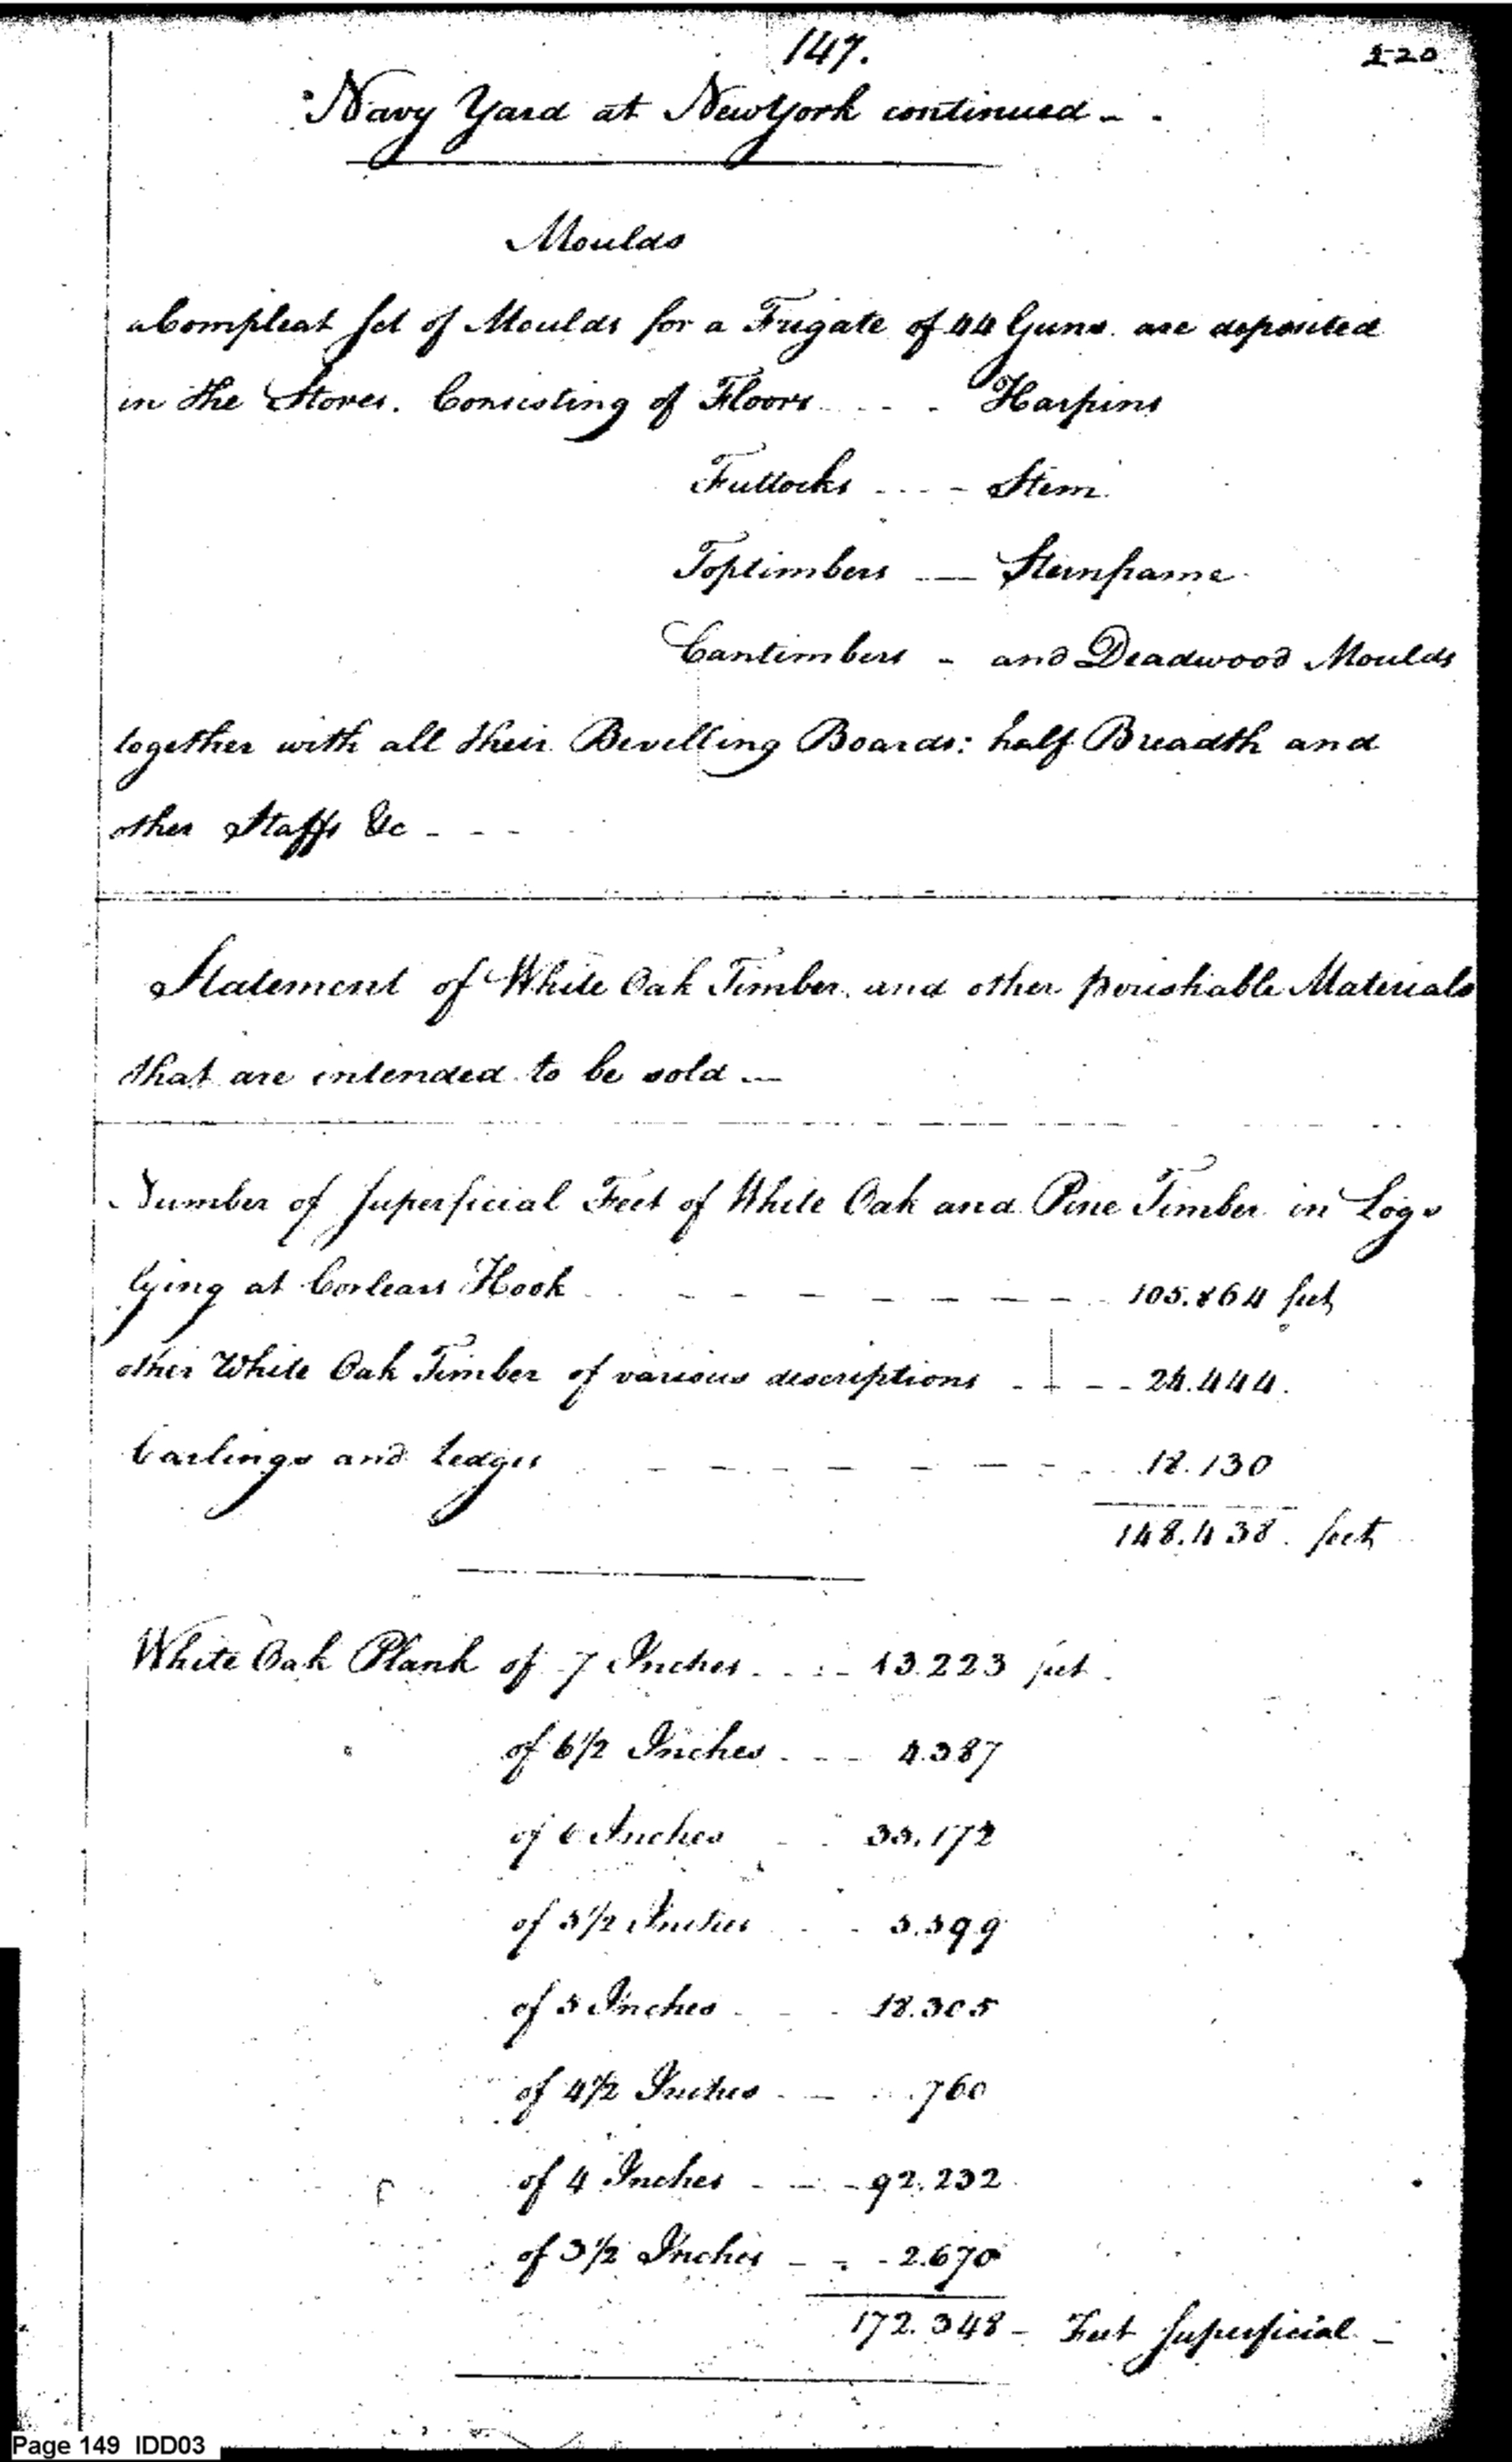 147.
120
Navy Yard at New York continued - -
Moulds
a Compleat Set of Moulds for a Frigate of 44 Guns are deposited
in the Stores. Consisting of Floors - - - Harpins
Futtocks - - - - Stem
Toptimbers - — Sternframe
Cantimbers - and Deadwood Moulds
together with all their Bevelling Boards: half Breadth and
other Staffs &c - - -
Statement of White Oak Timber and other perishable Materials
that are intended to be sold —
Number of Superficial Feet of White Oak and Pine Timber in Logs
lying at Corlears Hook - - - - - - - - 105.864 feet
other White Oak Timber of various descriptions - - - - 24.444.
Carlings and Ledges - - - - - - - - 18.130
148.438. feet
White Oak Plank of 7 Inches - - - 13.223 feet
of 6 1/2 Inches - - - 4.387
of 6 Inches - - 35.172
of 5 1/2 Inches - - 5.599
of 5 Inches - - - 18.305
of 4 1/2 Inches - — 760
of 4 Inches - - - 92.232
of 3 1/2 Inches - - - 2.670
172.348 - Feet Superficial -
Page 149 IDD03